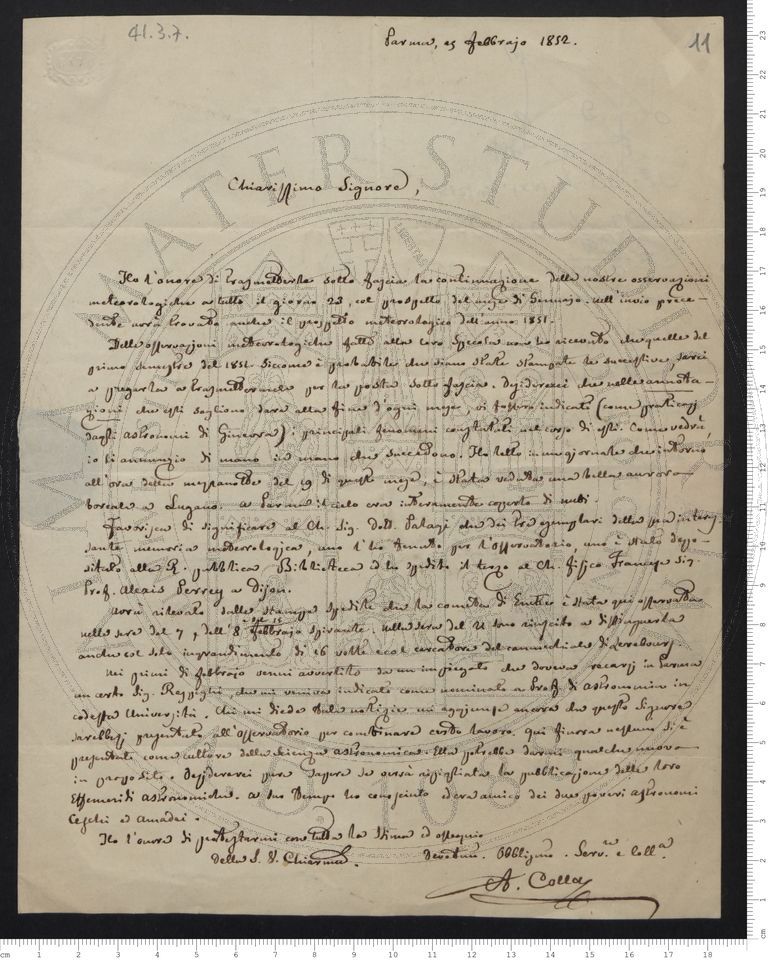 41.3.7.
11
Parma, 25 Febbrajo 1852.
Chiarissimo Signore,
Ho l'onore di trasmetterle sotto fascia la continuazione delle nostre osservazioni
meteorologiche a tutto il giorno 23, col prospetto del mese di Gennajo. Nell'invio prece-
dente avrà trovato anche il prospetto meteorologico dell'anno 1851.
Delle osservazioni meteorologiche fatte alla loro Specola non ho ricevuto che quelle del
primo semestre del 1851. Siccome è probabile che siano state stampate le successive, sarei
a pregarla a trasmettermele per la posta sotto fascia. Desidererei che nelle annota-
zioni che essi sogliono dare alla fine d'ogni mese, vi fossero indicati (come praticasi
dagli astronomi di Ginevra) i principali fenomeni constatati nel corso di essi. Come vedrà,
io li annunzio di mano in mano che succedono. Ho letto in un giornale che intorno
all'ora della mezzanotte del 19 di questo mese, è stata veduta una bella aurora
boreale a Lugano. A Parma il cielo era interamente coperto di nubi.
Favorisca di significare al Ch. Sig. Dott. Palagi che dei tre esemplari della sua interes-
sante memoria meteorologica, uno l'ho tenuto per l'Osservatorio, uno è stato depo-
sitato alla R. pubblica Biblioteca ed ho spedito il terzo al Ch. fisico Francese Sig.
Prof. Alexis Perrey a Dijon.
Avrà rilevato dalle stampe spedite che la cometa di Encke è stata qui osservata
nelle sere del 7, dell'8 Febbrajo spirante. Nella sera del 21 sono riuscito a dissiquerla
anche col solo ingrandimento di 16 volte e col cercatore del comecidale di Lerebours.
Nei primi di Febbrajo venni avvertito da un impiegato che doveva recarsi in Parma
un certo Sig. Respighi, che mi veniva indicato come nominato a Prof. di astronomia in
codesta Università. Chi mi diede tale notizia mi aggiunse ancora che questo Signore
sarebbesi presentato all'Osservatorio per combinare certo lavoro. Qui finora nessuno si è
presentato come cultore della scienza astronomica. Ella potrebbe darmi qualche nuova
in proposito. Desidererei pure sapere se verrà ripigliata la pubblicazione delle loro
Effemeridi astronomiche. A suo tempo ho conosciuto ed era amico dei due poveri astronomi
Ceschi ed Amadei.
Ho l'onore di protestarmi con tutta la stima ed ossequio
della S. V. Chiarma. Devotmo. Obbligmo. Servre e Colla
A. Colla